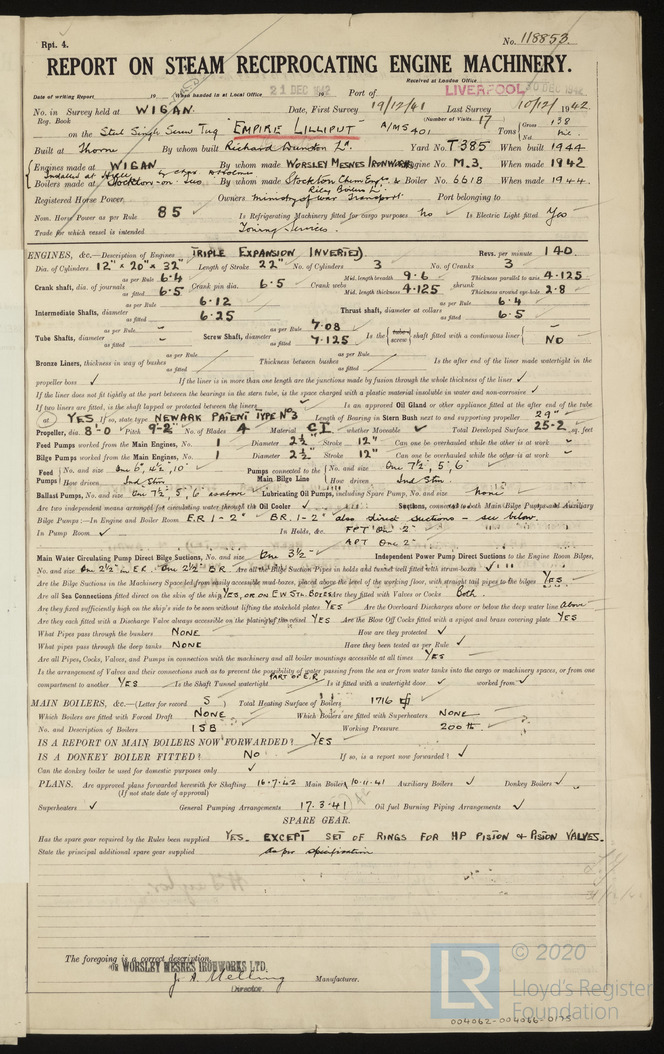 Rpt. 4.
No. 118853.
REPORT ON STEAM RECIPROCATING ENGINE MACHINERY.
Received at London Office
Date of writing Report 19 When handed in at Local Office 21 DEC 1942 19 Port of LIVERPOOL 30 DEC 1942
No. in Survey held at WIGAN. Date, First Survey 19/12/41 Last Survey 10/12/1942
Reg. Book (Number of Visits 17)
on the Steel Single Screw Tug "EMPIRE LILLIPUT" A/MS 401 Tons Gross 138 Net Nil.
Built at Thorne By whom built Richard Dunston Ld. Yard No. T385 When built 1944
Engines made at WIGAN By whom made WORSLEY MESNES IRONWORKS Engine No. M.3. When made 1942
Boilers made at Stockton-on-Tees By whom made Stockton Chem. Engrs. & Riley Boilers Ld. Boiler No. 6618 When made 1944.
Registered Horse Power Owners Ministry of War Transport Port belonging to
Nom. Horse Power as per Rule 85 Is Refrigerating Machinery fitted for cargo purposes No Is Electric Light fitted Yes
Trade for which vessel is intended Towing Services.
ENGINES, &c.—Description of Engines TRIPLE EXPANSION (INVERTED) Revs. per minute 140
Dia. of Cylinders 12" x 20" x 32" Length of Stroke 22" No. of Cylinders 3 No. of Cranks 3
Crank shaft, dia. of journals as per Rule 6.4 as fitted 6.5 Crank pin dia. 6.5 Crank webs Mid. length breadth 9.6 Mid. length thickness 4.125 shrunk Thickness parallel to axis 4.125 Thickness around eye-hole 2.8
Intermediate Shafts, diameter as per Rule 6.12 as fitted 6.25 Thrust shaft, diameter at collars as per Rule 6.4 as fitted 6.5
Tube Shafts, diameter as per Rule – as fitted – Screw Shaft, diameter as per Rule 7.08 as fitted 7.125 Is the {tube screw} shaft fitted with a continuous liner NO
Bronze Liners, thickness in way of bushes as per Rule as fitted Thickness between bushes as per Rule as fitted Is the after end of the liner made watertight in the
propeller boss ✓ If the liner is in more than one length are the junctions made by fusion through the whole thickness of the liner ✓
If the liner does not fit tightly at the part between the bearings in the stern tube, is the space charged with a plastic material insoluble in water and non-corrosive ✓
If two liners are fitted, is the shaft lapped or protected between the liners ✓ Is an approved Oil Gland or other appliance fitted at the after end of the tube
YES If so, state type NEWARK PATENT TYPE No 3 Length of Bearing in Stern Bush next to and supporting propeller 29"
Propeller, dia. 8'-0 Pitch 9'-2" No. of Blades 4 Material C.I. whether Moveable ✓ Total Developed Surface 25.2 sq. feet
Feed Pumps worked from the Main Engines, No. 1 Diameter 2½" Stroke 12" Can one be overhauled while the other is at work –
Bilge Pumps worked from the Main Engines, No. 1 Diameter 2½" Stroke 12" Can one be overhauled while the other is at work –
Feed Pumps No. and size One 6", 4½", 10" Pumps connected to the Main Bilge Line No. and size One 7½", 5", 6"
How driven Ind. Stm. How driven Ind. Stm.
Ballast Pumps, No. and size One 7½", 5", 6" as above Lubricating Oil Pumps, including Spare Pump, No. and size None
Are two independent means arranged for circulating water through the Oil Cooler ✓ Suctions, connected to both Main Bilge Pumps and Auxiliary
Bilge Pumps:—In Engine and Boiler Room E.R. 1-2" B.R. 1-2" also direct suctions - see below.
In Pump Room ✓ In Holds, &c. FPT One 2"
APT One 2"
Main Water Circulating Pump Direct Bilge Suctions, No. and size One 3½" Independent Power Pump Direct Suctions to the Engine Room Bilges,
No. and size One 2½" in E.R. One 2½" B.R. Are all the Bilge Suction Pipes in holds and tunnel well fitted with strum-boxes ✓
Are the Bilge Suctions in the Machinery Space led from easily accessible mud-boxes, placed above the level of the working floor, with straight tail pipes to the bilges Yes
Are all Sea Connections fitted direct on the skin of the ship YES, OR ON E.W. STL. BOXES Are they fitted with Valves or Cocks Both.
Are they fixed sufficiently high on the ship's side to be seen without lifting the stokehold plates YES Are the Overboard Discharges above or below the deep water line Above
Are they each fitted with a Discharge Valve always accessible on the plating of the vessel YES Are the Blow Off Cocks fitted with a spigot and brass covering plate YES
What Pipes pass through the bunkers NONE How are they protected ✓
What pipes pass through the deep tanks NONE Have they been tested as per Rule ✓
Are all Pipes, Cocks, Valves, and Pumps in connection with the machinery and all boiler mountings accessible at all times YES
Is the arrangement of Valves and their connections such as to prevent the possibility of water passing from the sea or from water tanks into the cargo or machinery spaces, or from one
compartment to another YES Is the Shaft Tunnel watertight PART OF E.R. Is it fitted with a watertight door ✓ worked from ✓
MAIN BOILERS, &c.—(Letter for record S) Total Heating Surface of Boilers 1716
Which Boilers are fitted with Forced Draft NONE Which Boilers are fitted with Superheaters NONE
No. and Description of Boilers 1 SB Working Pressure 200 lb.
IS A REPORT ON MAIN BOILERS NOW FORWARDED? YES
IS A DONKEY BOILER FITTED? NO If so, is a report now forwarded? ✓
Can the donkey boiler be used for domestic purposes only ✓
PLANS. Are approved plans forwarded herewith for Shafting 16.7.42 Main Boilers 10.11.41 Auxiliary Boilers ✓ Donkey Boilers ✓
(If not state date of approval)
Superheaters ✓ General Pumping Arrangements 17.3.41 Oil fuel Burning Piping Arrangements ✓
SPARE GEAR.
Has the spare gear required by the Rules been supplied YES. EXCEPT SET OF RINGS FOR HP PISTON & PISTON VALVES.
State the principal additional spare gear supplied As per specification
The foregoing is a correct description,
WORSLEY MESNES IRONWORKS LTD.
J. A. Melling Manufacturer.
Director.
LR
© 2020
Lloyd's Register
Foundation
004062-004066-0175